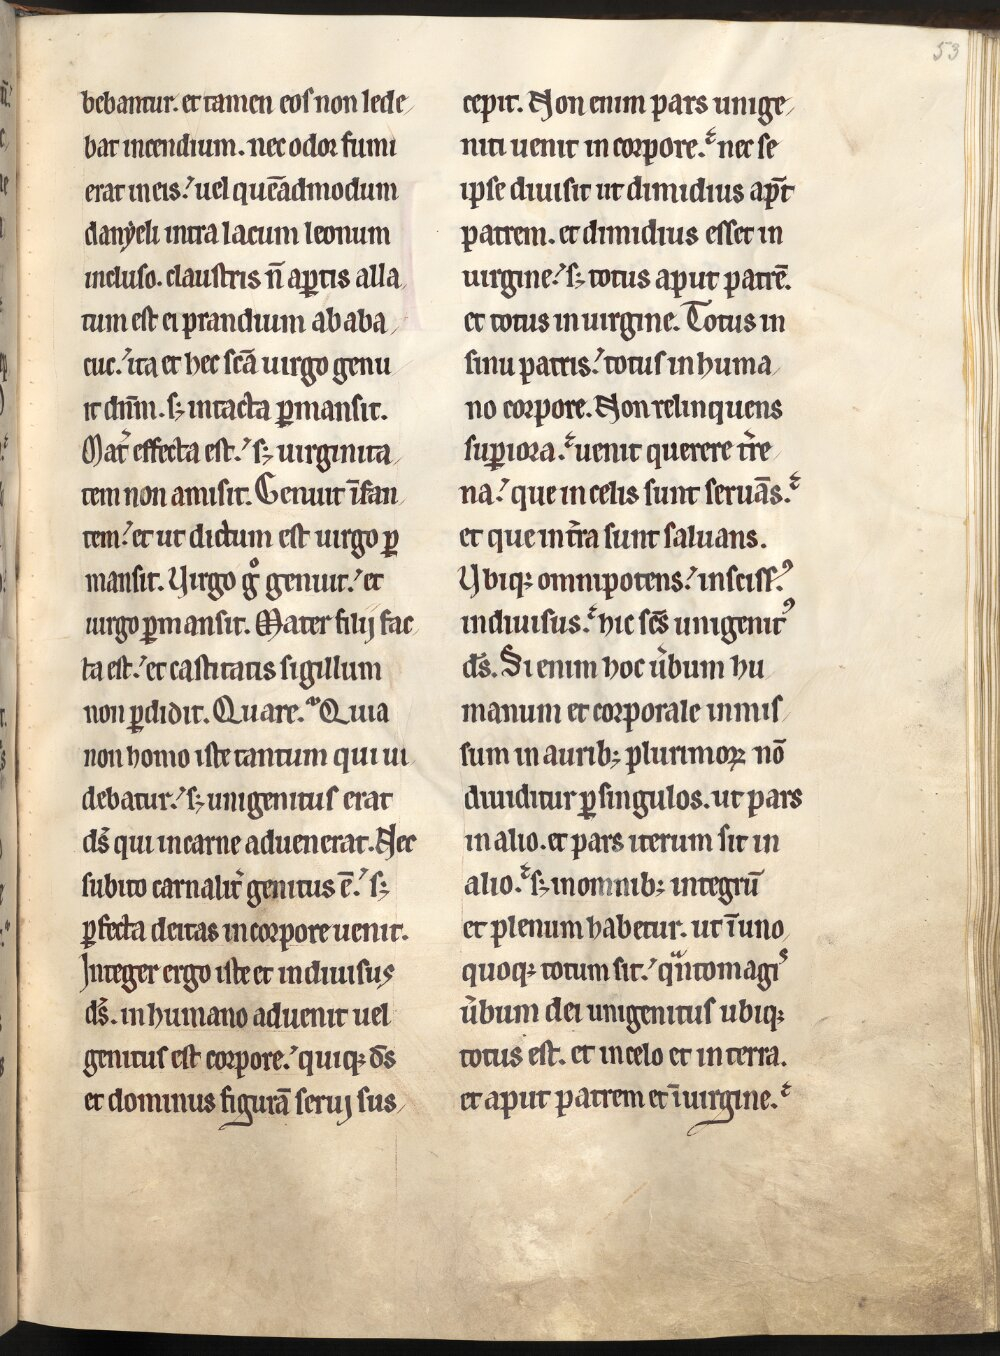 53
bebantur. et tamen eos non lede
bat incendium. nec odor fumi
erat in eis. uel quēadmodum
danẏeli intra lacum leonum
incluso. claustris n̄ ap̱tis alla
tum est ei prandium ab aba
cuc. ita et hec sc̄a uirgo genu
it dn̄m. sꝫ intacta ꝑmansit.
Mat̄ effecta est. sꝫ uirginita
tem non amisit. Genuit īfan
tem. et ut dictum est uirgo ꝑ
mansit. Virgo gͦ genuit. et
uirgo ꝑmansit. Mater filij fac
ta est. et castitatis sigillum
non ꝑdidit. Quare. Quia
non homo iste tantum qui ui
debatur. sꝫ unigenitus erat
ds̄ qui in carne aduenerat. Nec
subito carnalit̄ genitus ē. sꝫ
ꝑfecta deitas in corpore uenit.
Integer ergo iste et indiuisus
ds̄. in humano aduenit uel
genitus est corpore. quiqꝫ ds̄
et dominus figurā serui sus
cepit. Non enim pars unige
niti uenit in corpore. nec se
ipse diuisit ut dimidius ap̄t
patrem. et dimidius esset in
uirgine. sꝫ totus aput patrē.
et totus in uirgine. Totus in
sinu patris. totus in huma
no corpore. Non relinquens
suꝑiora. uenit querere t̄re
na. que in celis sunt seruās.
et que in t̄ra sunt saluans.
Vbiqꝫ omnipotens. inscissꝯ
indiuisus. hic sc̄s unigenitꝯ
ds̄. Si enim hoc ūbum hu
manum et corporale inmis
sum in auribꝫ plurimoꝝ nō
diuiditur ꝑ singulos. ut pars
in alio. et pars iterum sit in
alio. sꝫ in omnibꝫ integrū
et plenum habetur. ut ī uno
quoqꝫ totum sit. qͣntomagͥs
ūbum dei unigenitus ubiqꝫ
totus est. et in celo et in terra.
et aput patrem et ī uirgine.